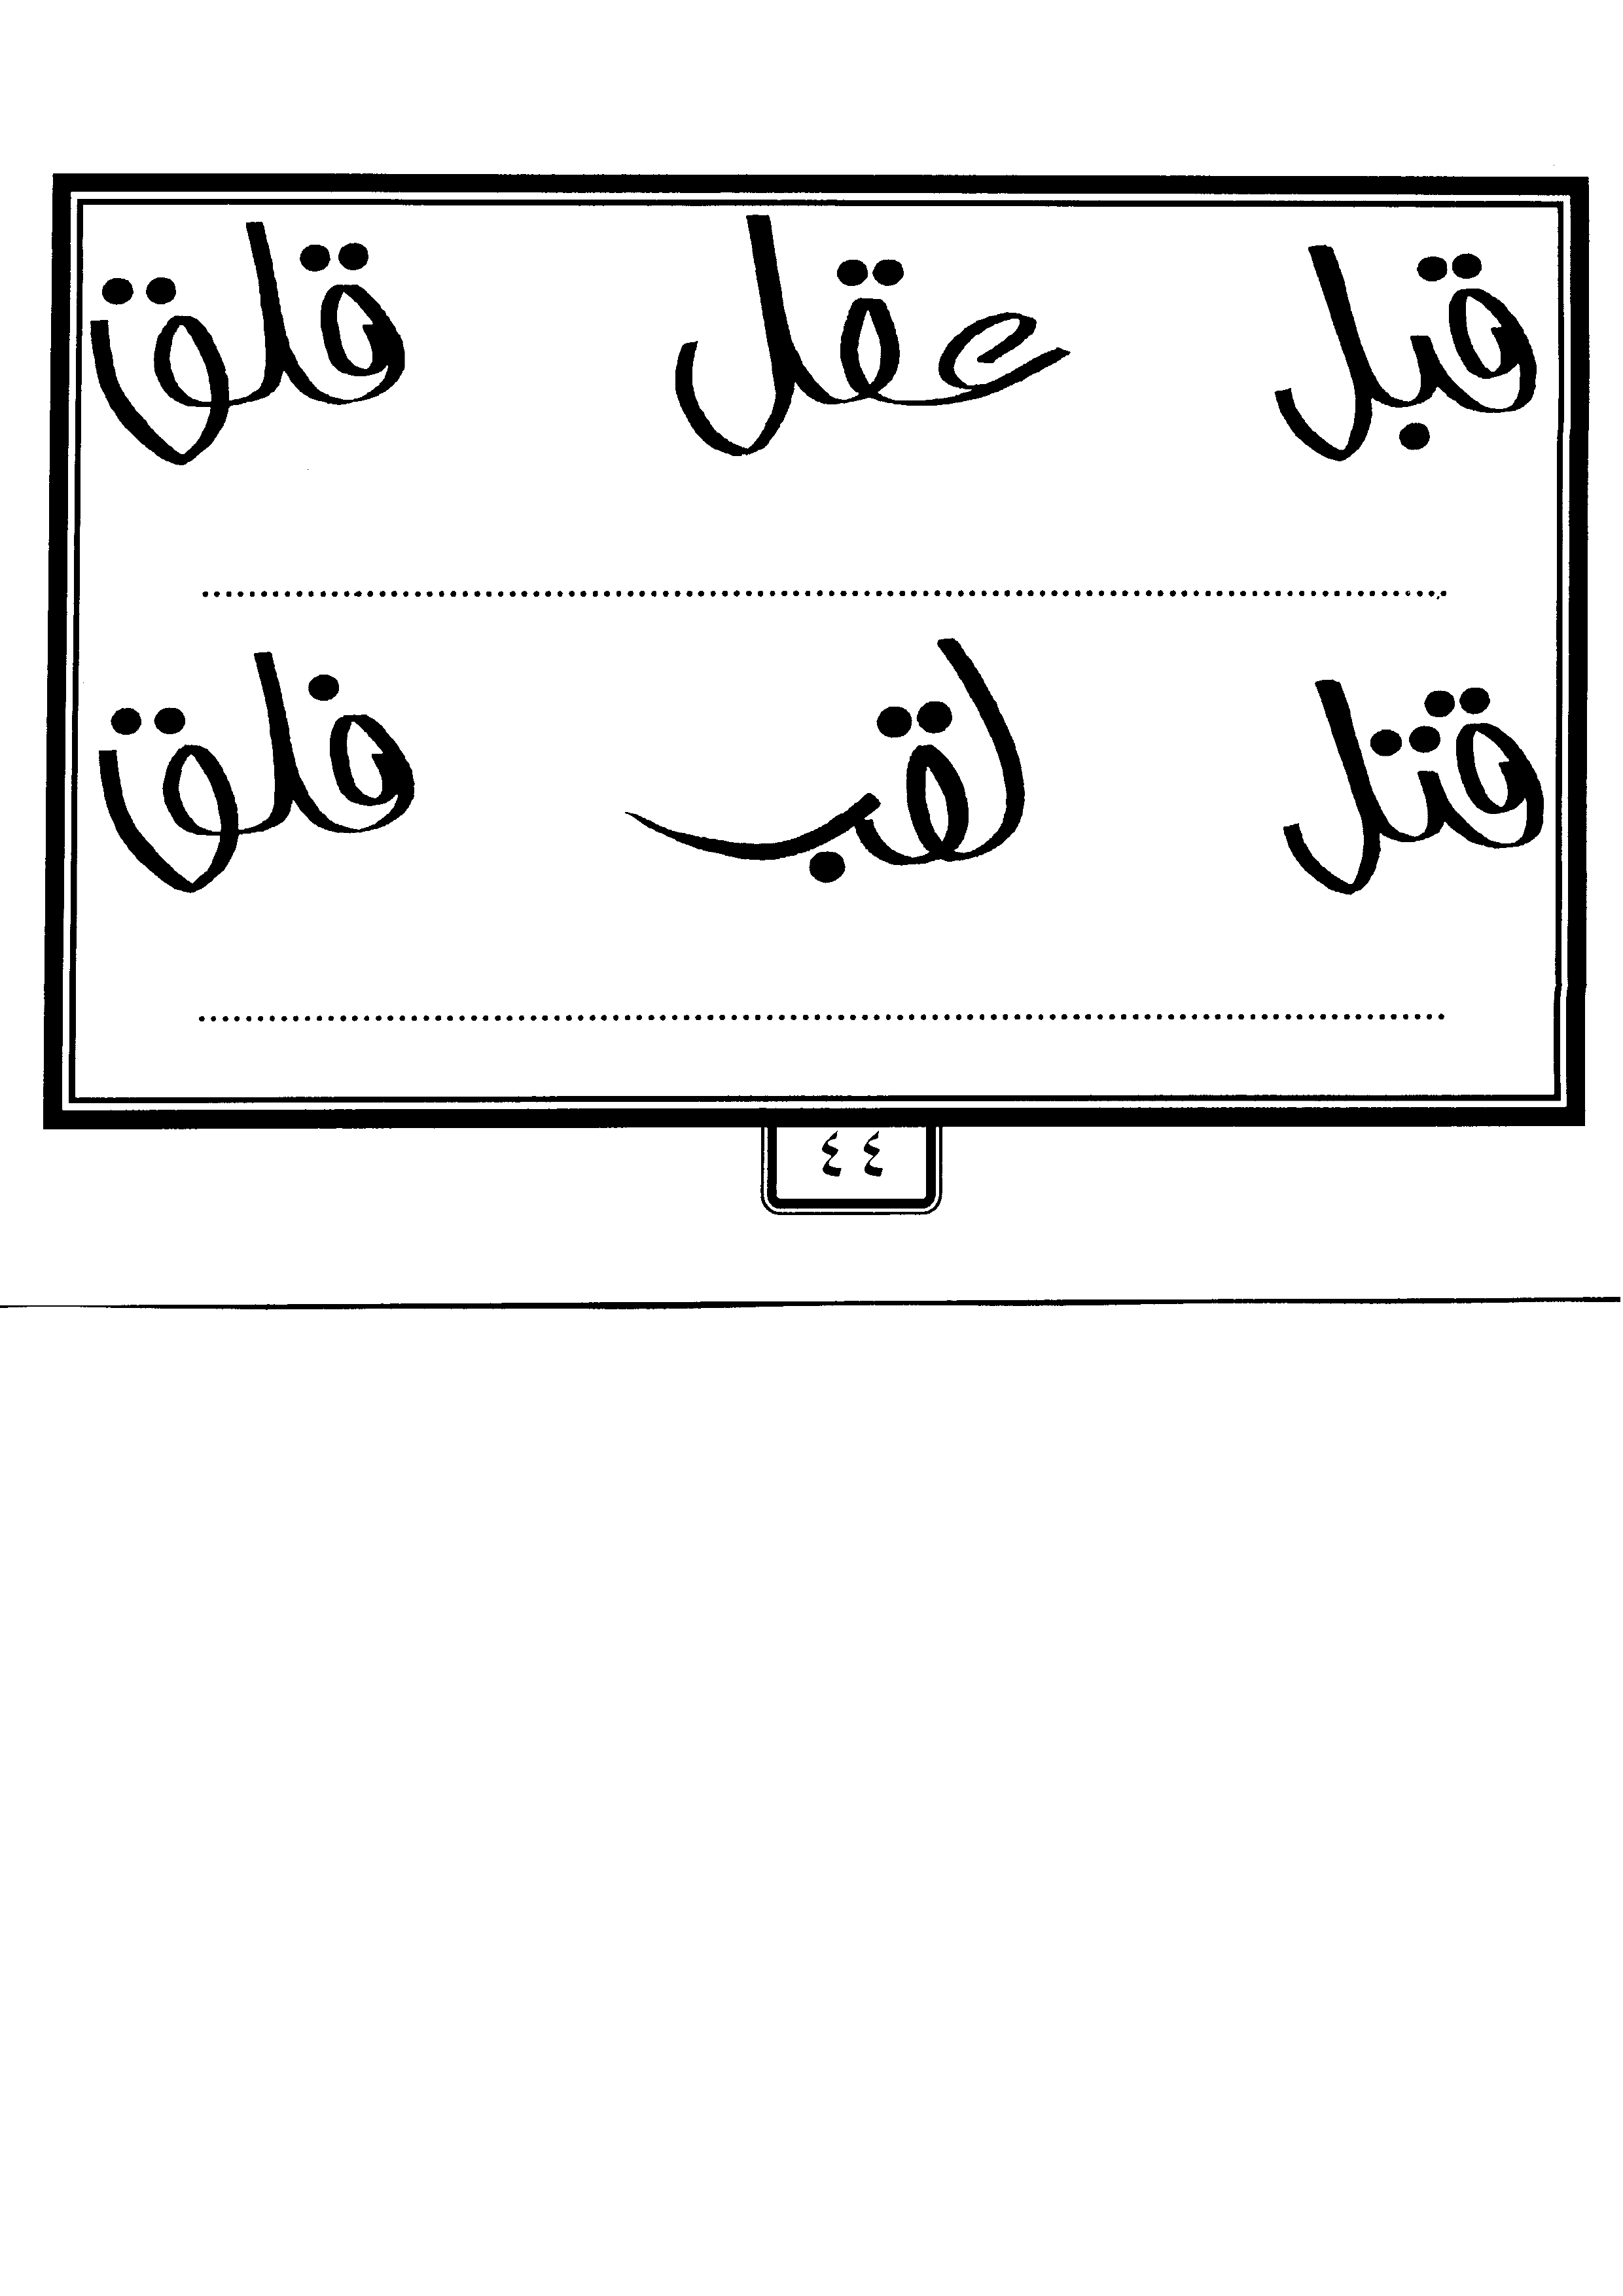 قبل عقل قلق
قتل لقب فلق
٤٤